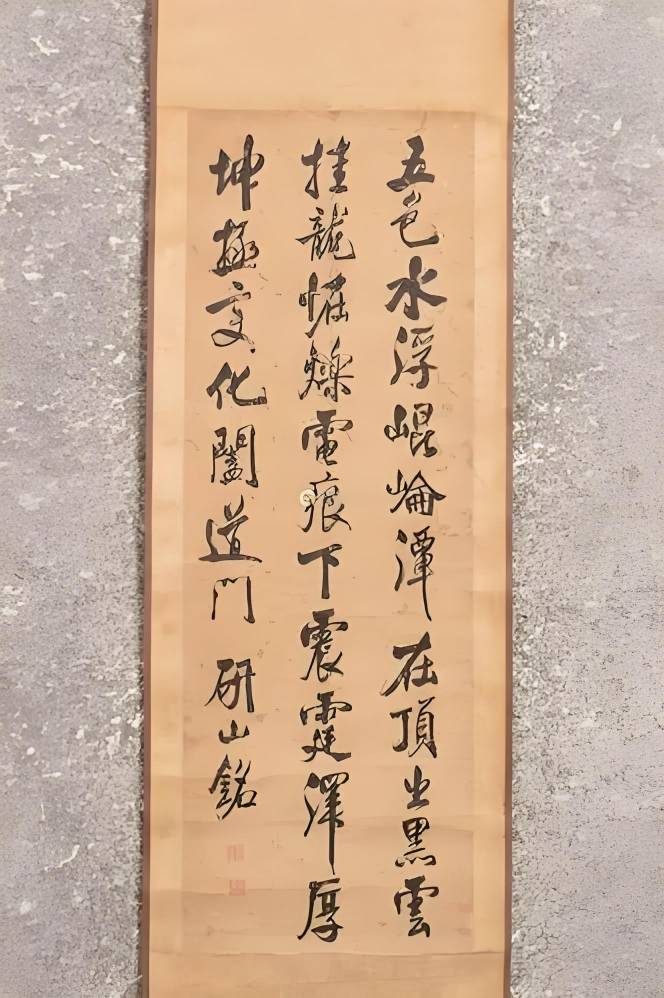 五色水浮崐崘潭在頂出黒雲
挂龍怪爍電痕下震霆澤厚
坤極變化闔道門 研山銘